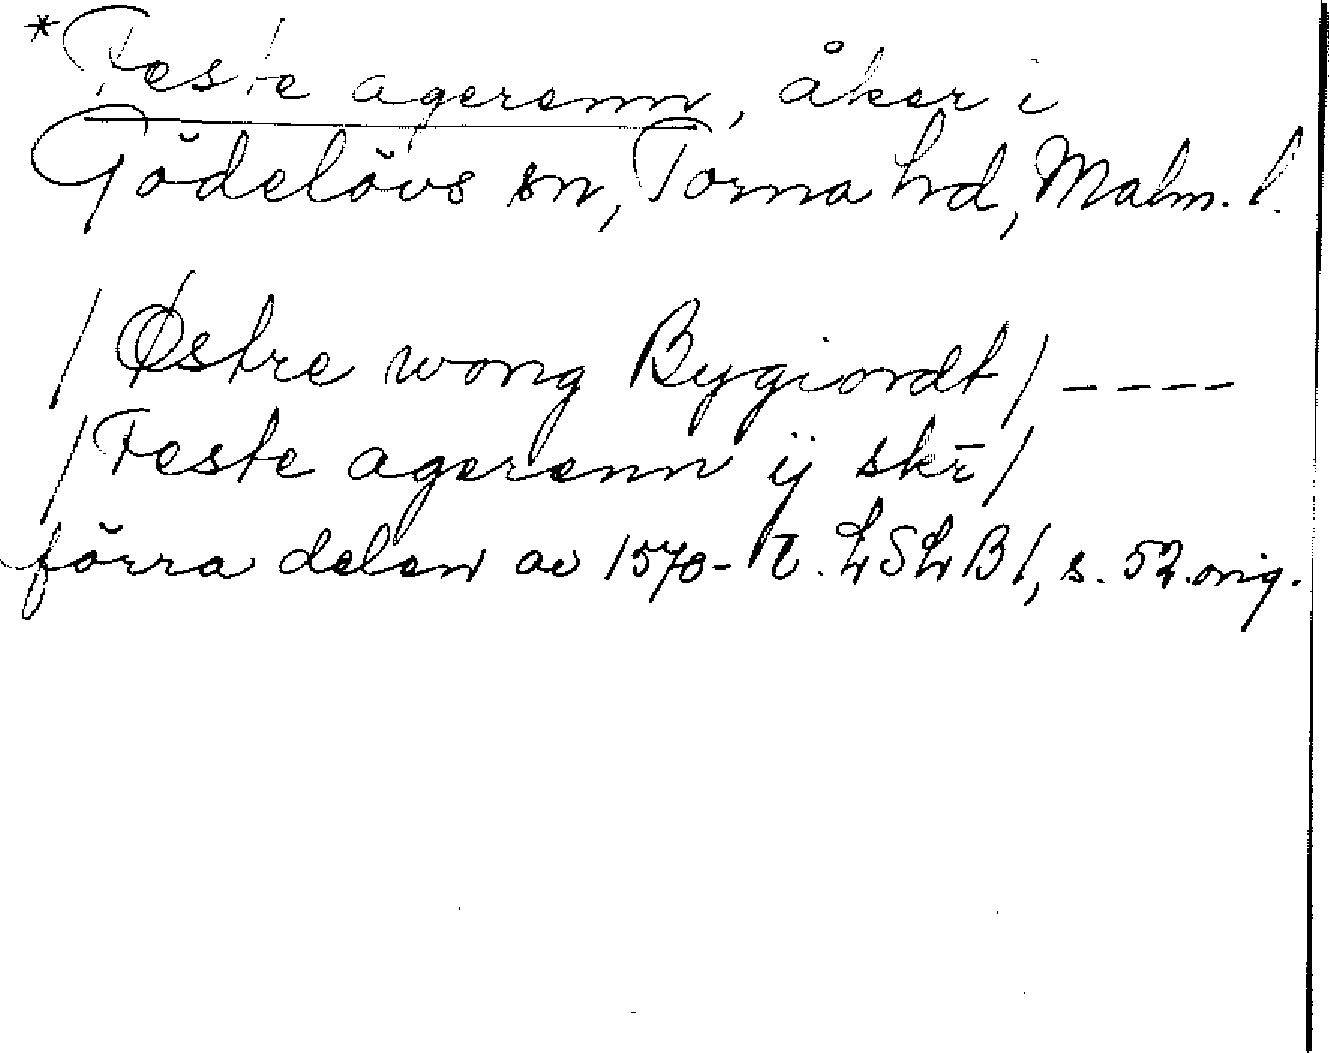 *Feste agerenn, åker i
Gödelövs sn, Torna hd, Malm. l.
/Østre wong Bygiordt/ ----
/Feste agerenn ij skē/
förra delen av 1570-t. LSLB1, s. 52.orig.